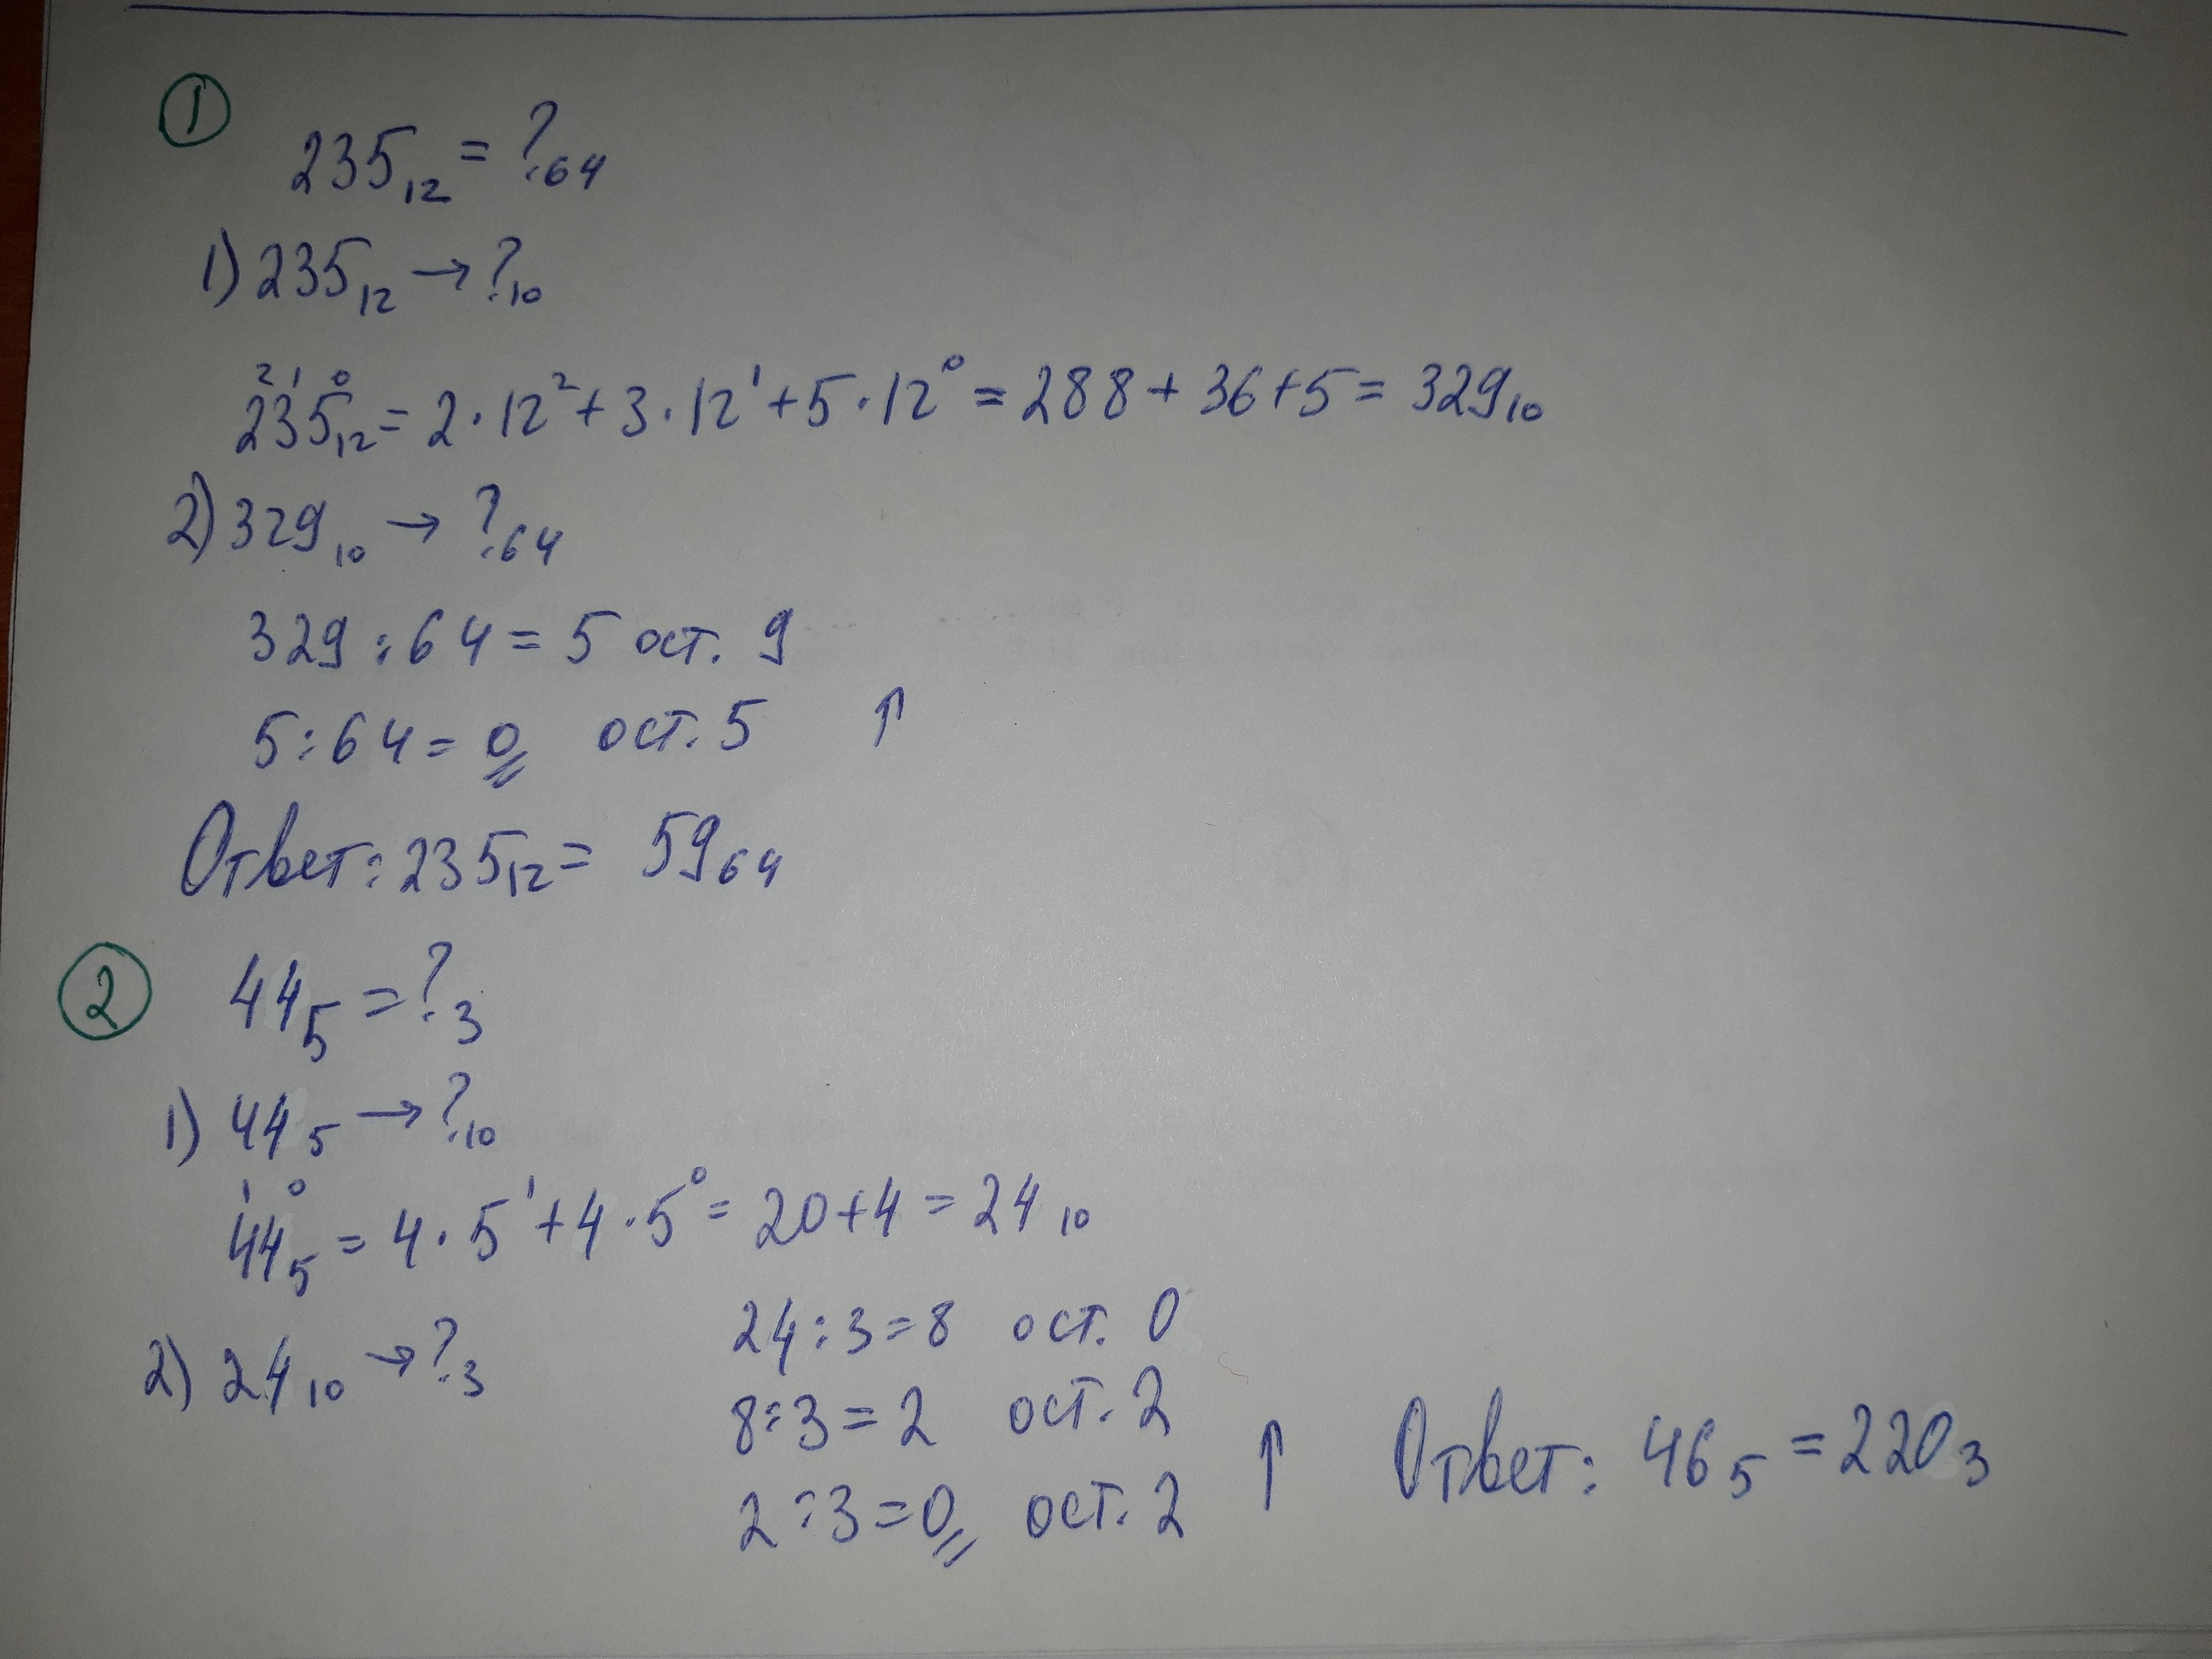 1
235₁₂ = ?₆₄
1) 235₁₂ → ?₁₀
2 1 0
235₁₂ = 2·12² + 3·12¹ + 5·12⁰ = 288 + 36 + 5 = 329₁₀
2) 329₁₀ → ?₆₄
329 : 64 = 5 ост. 9
5 : 64 = 0 ост. 5 ↑
Ответ: 235₁₂ = 59₆₄
2
44₅ = ?₃
1) 44₅ → ?₁₀
1 0
44₅ = 4·5¹ + 4·5⁰ = 20 + 4 = 24₁₀
2) 24₁₀ → ?₃
24 : 3 = 8 ост. 0
8 : 3 = 2 ост. 2
2 : 3 = 0 ост. 2 ↑
Ответ: 46₅ = 220₃